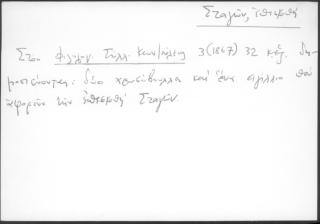 Σταγῶν, ἐπισκοπὴ
Στον Φιλολογ. Συλλ. Κων/πόλεως 3 (1867) 32 κἑξ. δη-
μοσιεύονται: δύο χρυσόβουλλα καὶ ἕνα σιγίλλιο ποὺ
ἀφοροῦν τὴν ἐπισκοπὴ Σταγῶν